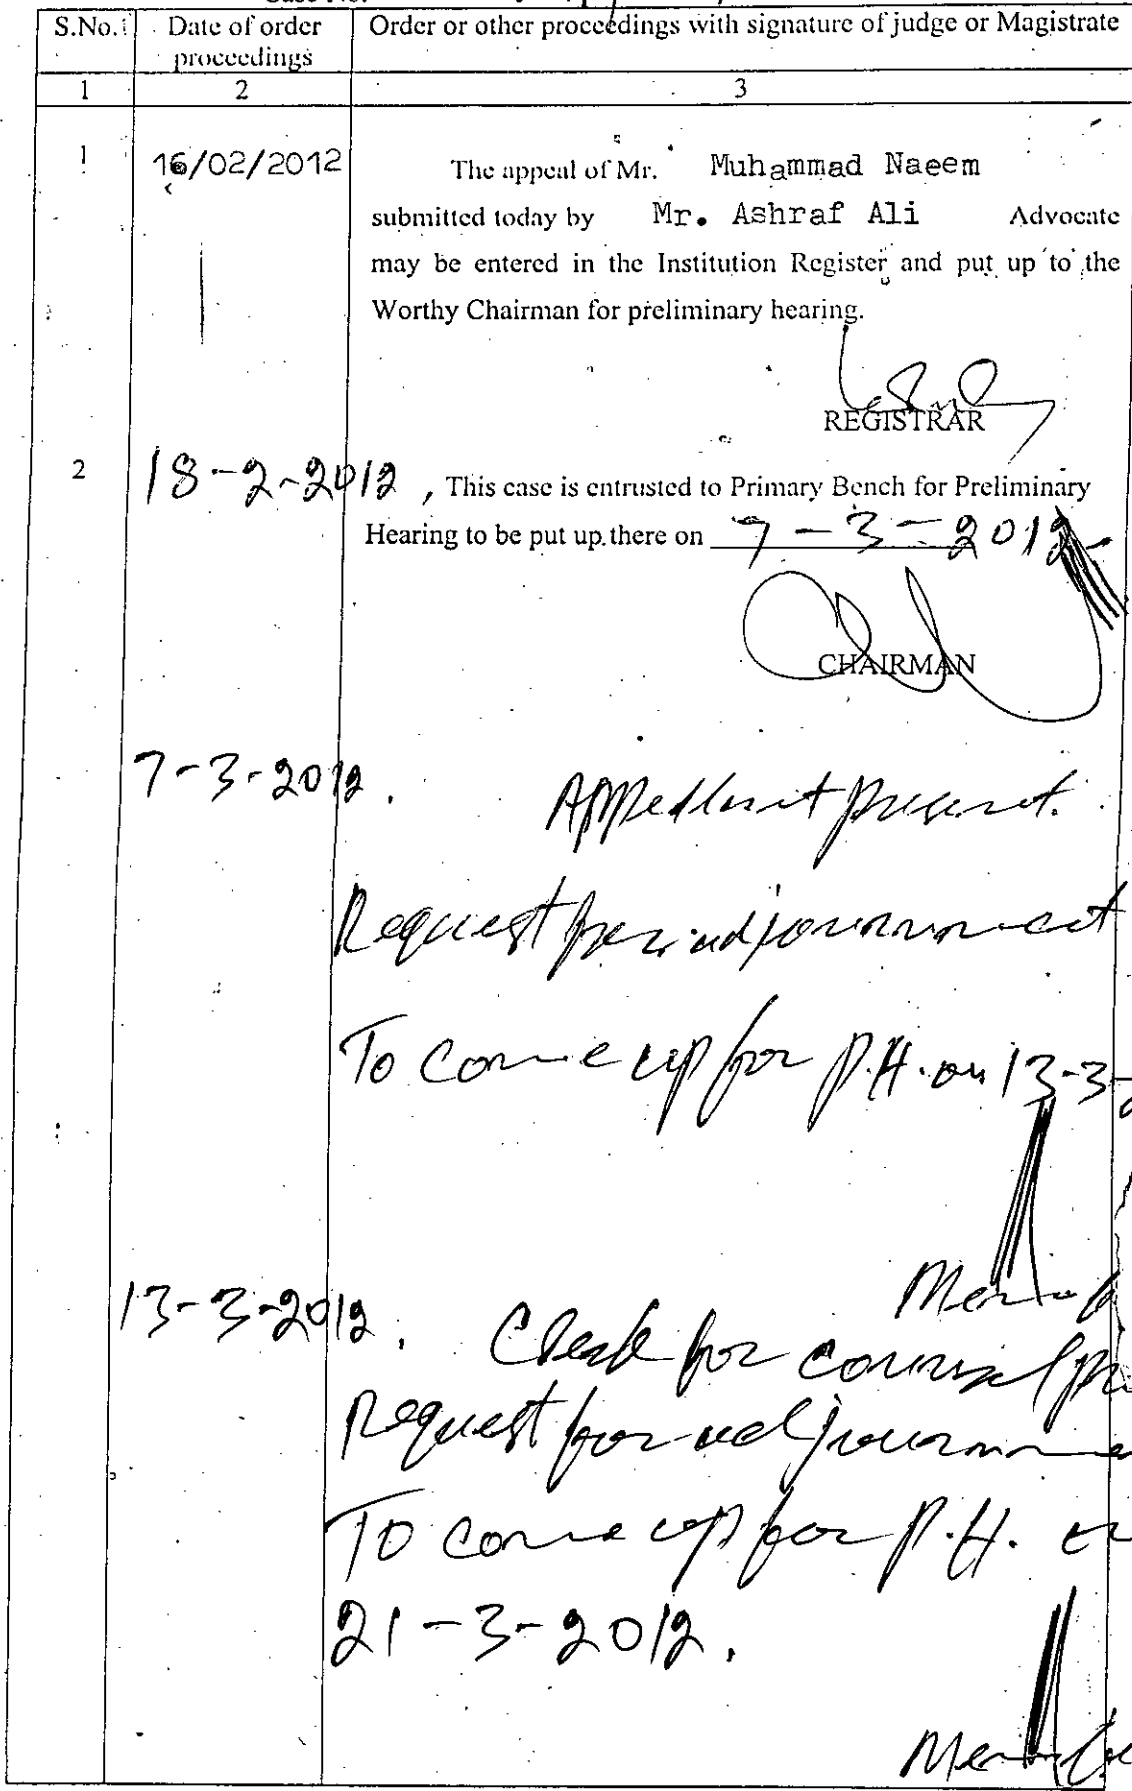 Case No.
S.No. Date of order Order or other proceedings with signature of judge or Magistrate
proceedings
1 2 3
1 16/02/2012 The appeal of Mr. Muhammad Naeem
submitted today by Mr. Ashraf Ali Advocate
may be entered in the Institution Register and put up to the
Worthy Chairman for preliminary hearing.
REGISTRAR
2 18-2-2012, This case is entrusted to Primary Bench for Preliminary
Hearing to be put up there on 7-3-2012
CHAIRMAN
7-3-2012. Appellant present.
Request for adjournment
To come up for P.H. on 13-3-
Member
13-3-2012. Clerk for counsel
Request for
To come up for P.H. on
21-3-2012.
Member